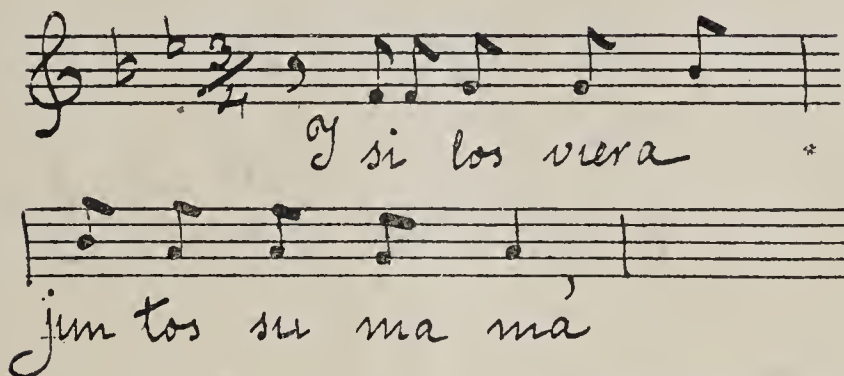 3/4
Y si los viera
jun tos su ma má